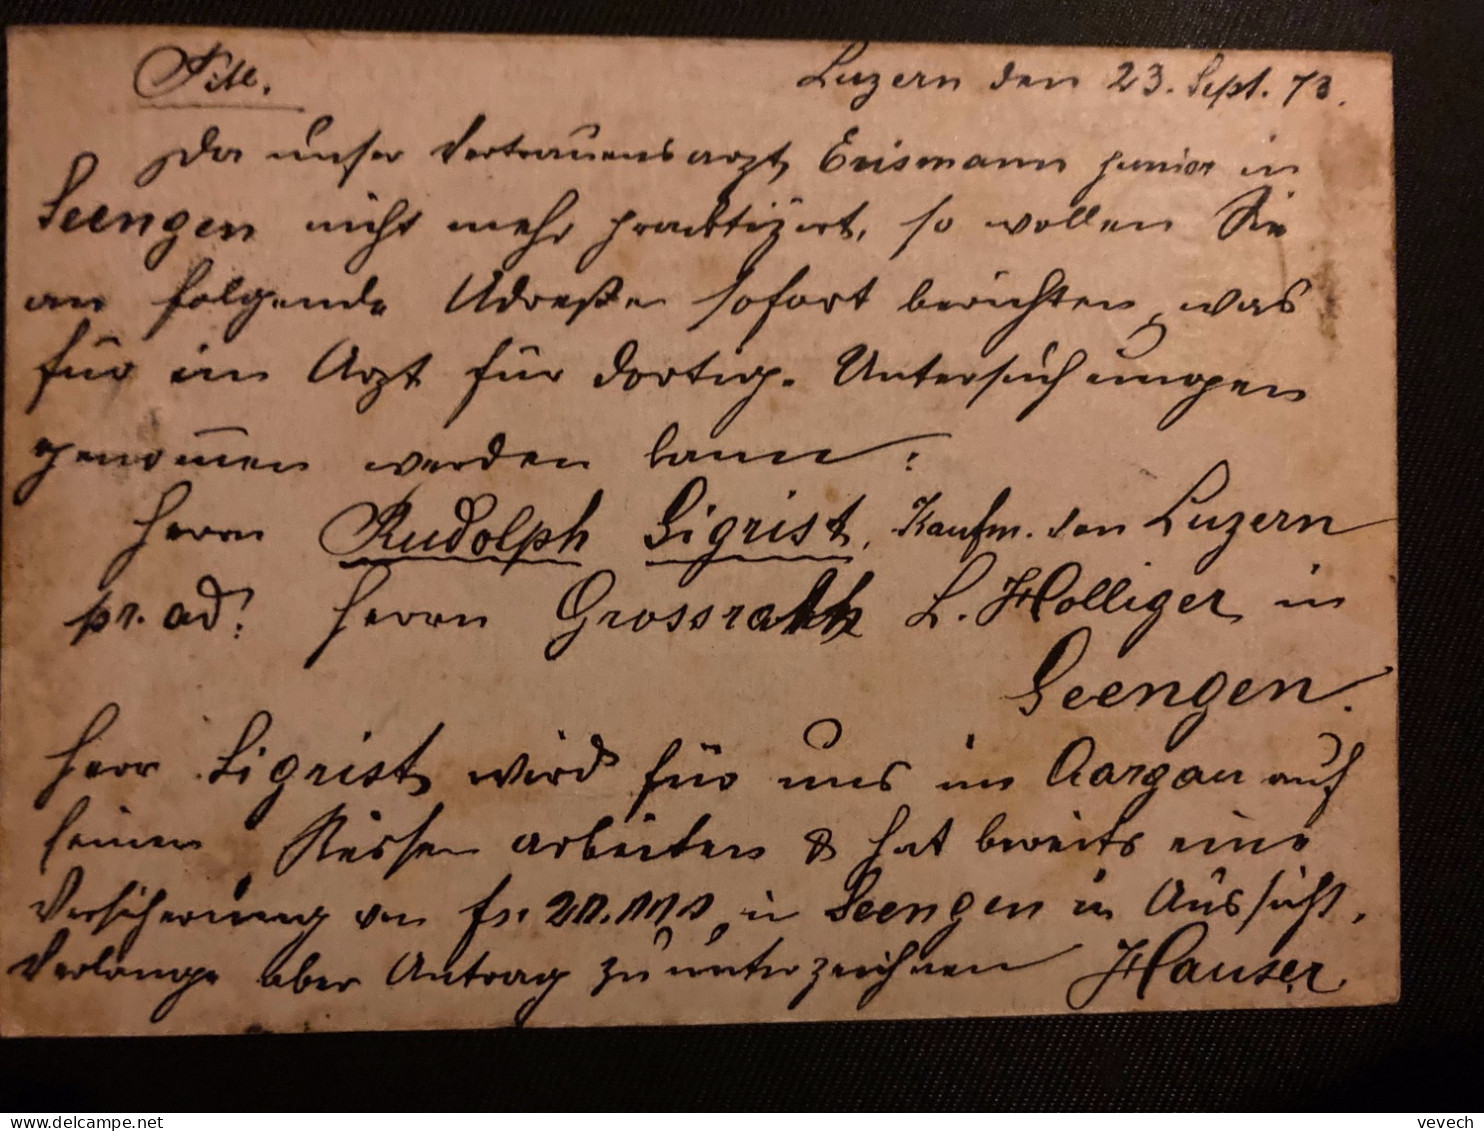 Titl.
Luzern den 23. Sept. 73.
Da unser Vertrauensarzt Erismann junior in
Seengen nicht mehr practizirt, so wollen Sie
an folgende Adreße sofort berichten, was
für ein Arzt für dortig. Untersuchungen
genom̅en werden kann:
Herrn Rudolph Sigrist, Kaufm. von Luzern
pr. ad: Herrn Grossrath L. Holliger in
Seengen.
Herr Sigrist wird für uns im Aargau auf
seinen Reisen arbeiten & hat bereits eine
Versicherung von fr. 20.000 in Seengen in Aussicht,
Verlange aber Antrag zu unterzeichnen Hauser.
vevech